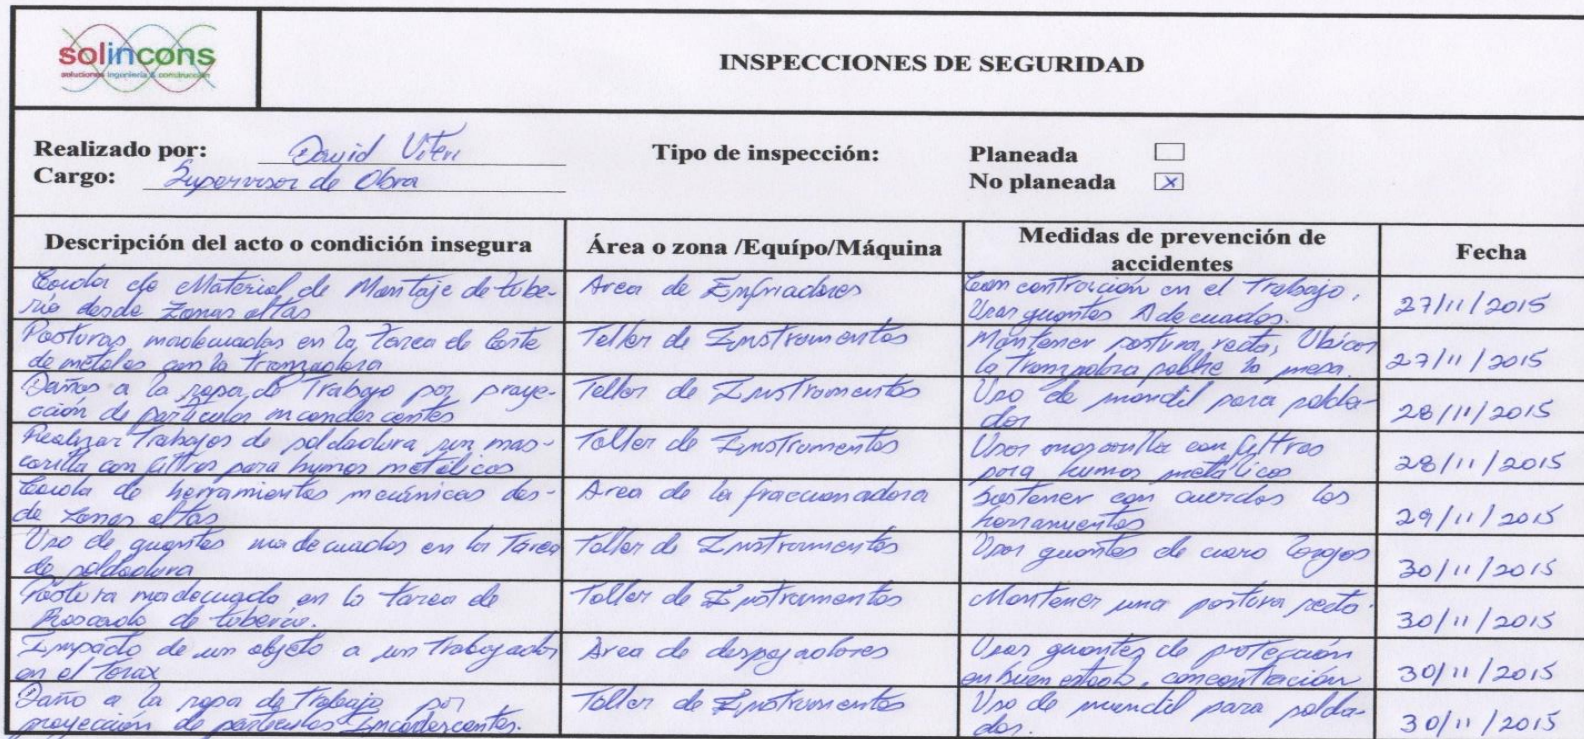 solincons
soluciones ingeniería & construcción
INSPECCIONES DE SEGURIDAD
Realizado por: David Viteri
Cargo: Supervisor de Obra
Tipo de inspección:
Planeada
No planeada X
Descripción del acto o condición insegura
Área o zona /Equípo/Máquina
Medidas de prevención de accidentes
Fecha
Caida de Material de Montaje de tube-
ría desde zonas altas
Area de Enfriadores
Con contración en el Trabajo,
Usar guantes Adecuados.
27/11/2015
Posturas inadecuadas en la Tarea de Corte
de metales con la tronzadora
Taller de Instrumentos
Mantener postura recta, Ubicar
la tronzadora sobre la mesa.
27/11/2015
Daños a la ropa de Trabajo por proye-
ción de partículas incandescentes
Taller de Instrumentos
Uso de mandil para solda-
dor
28/11/2015
Realizar Trabajos de soldadura sin mas-
carilla con filtros para humos metálicos
Taller de Instrumentos
Usar mascarilla con filtros
para humos metálicos
28/11/2015
Caida de herramientas mecánicas des-
de zonas altas
Area de la fraccionadora
Sostener con cuerdas las
herramientas
29/11/2015
Uso de guantes inadecuados en la Tarea
de soldadura
Taller de Instrumentos
Usar guantes de cuero largos
30/11/2015
Postura inadecuada en la tarea de
Roscado de tubería.
Taller de Instrumentos
Mantener una postura recta.
30/11/2015
Impacto de un objeto a un Trabajador
en el Torax
Area de despojadores
Usar guantes de protección
en buen estado, concentración
30/11/2015
Daño a la ropa de trabajo por
proyección de partículas Incandescentes.
Taller de Instrumentos
Uso de mandil para solda-
dor.
30/11/2015